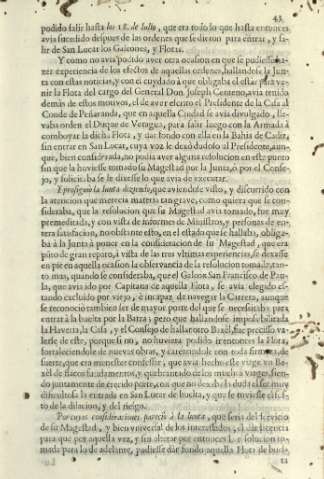 43
podido salir hasta los 18. de Julio, que era todo lo que hasta entonces
avia sucedido despues de las ordenes que se dieron para entrar, y sa-
lir de San Lucar los Galeones, y Flotas.
Y como no avia podido aver otra ocasion en que se pudiesse
ter experiencia de los efectos de aquellas ordenes, hallandose la Jun-
ta con estas noticias, y con el cuydado à que obligava el estar para ve-
nir la Flota del cargo del General Don Joseph Centeno, avia tenido
demàs de estos motivos, el de aver escrito el Presidente de la Casa al
Conde de Peñaranda, que en aquella Ciudad se avia divulgado,
vaba orden el Duque de Veragua, para salir luego con la Armada à
comboyar la dicha Flota, y dar fondo con ella en la Bahìa de Cadiz,
sin entrar en San Lucar, cuya voz le dexò dudoso al Presidente, aun-
que, bien considerada, no podia aver alguna resolucion en este punto
sin que la huviesse tomado su Magestad por la Junta, ò por el Conse-
jo, y solicitaba se le diesse lo que avia de executar.
Y prosiguiò la Junta diziendo, que aviendose visto, y discurrido con
la atencion que merecia materia tan grave, como quiera que se con-
sideraba, que la resolucion que su Magestad avia tomado, fue muy
premeditada, y con vista de informes de Ministros, y personas de en-
tera satisfacion, no obstante esto, en el estado que se hallaba, obliga-
ba à la Junta à poner en la consideracion de su Magestad, que era
piso de gran reparo, à vista de las tres vltimas experiencias, se dexasse
en pie en aquella ocasion la observancia de la resolucion tomada, tan-
to mas, quando se consideraba, que el Galeon San Francisco de Pau-
la, que avia ido por Capitana de aquella Flota, se avia elegido es-
tando excluìdo por viejo, è incapaz de navegar la Carrera, aunque
se reconociò tambien ser de mayor porte del que se necessitaba para
entrar à la buelta por la Barra; pero que hallandose impossibilitada
la Haveria, la Casa, y el Consejo de hallar otro Baxèl, fue precisso va-
lerse de este, porque si no, no huviera podido irse entonces la Flota,
fortaleciendole de nuevas obras, y carenandole con toda firmeza, de
suerte, que era menester confessar, que avia hecho este viage vn Ba-
xèl de flacos fundamentos, y quebrantado de los muchos viages, sien-
do juntamente de crecido porte, con que no dexaba de duda ser muy
dificultosa la entrada en San Lucar de buelta, y que se huviesse
to de la dilacion, y del riesgo.
Por cuyas consideraciones pareciò à la Junta, que seria del servicio
de su Magestad, y bien vniversal de los interesados, el dàr licencia
para que por aquella vez, y sin alterar por entonces la resolucion to-
mada para lo de adelante, pudiesse dàr fondo aquella Flota de buel-
ta